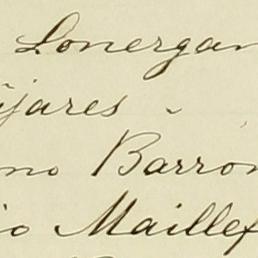 Lonergan
ijares -
no Barron
io Maillef